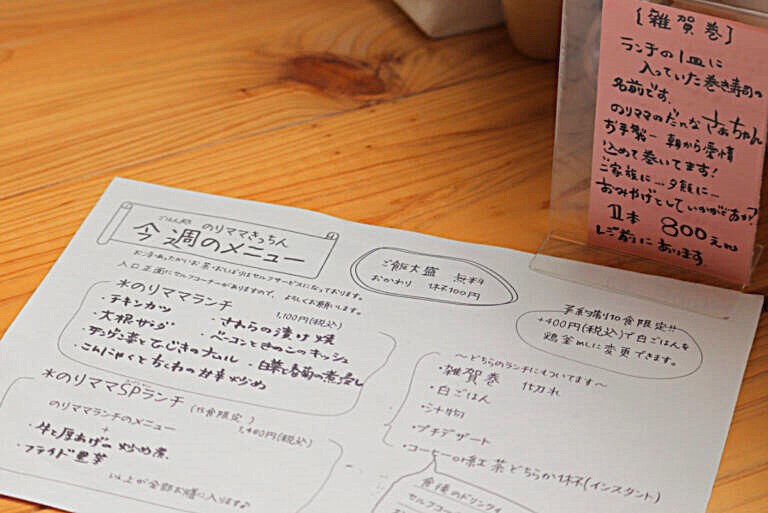 ごはん処 のりママきっちん
今週のメニュー
お冷・あったかいお茶・おしぼりはセルフサービスになっております。
入口正面にセルフコーナーがありますので、よろしくお願いします。
*のりママランチ
1,100円(税込)
・チキンカツ ・さわらの漬け焼
・大根サラダ ・ベーコンときのこのキッシュ
・チンゲン菜とひじきのナムル ・白菜と春菊の煮浸し
・こんにゃくとちくわの甘辛炒め
*のりママSPランチ (15食限定)
1,400円(税込)
のりママランチのメニュー
+
・牛と厚あげの炒め煮
・フライド里芋
以上が全部お膳に入ります♪
ご飯大盛 無料
おかわり 1杯100円
予約制10食限定!!
+400円(税込)で白ごはんを
鶏釜めしに変更できます。
〜どちらのランチにもついてます〜
・雑賀巻 1切れ
・白ごはん
・汁物
・プチデザート
・コーヒーor紅茶どちらか1杯(インスタント)
食後のドリンクは
セルフコー
[雑賀巻]
ランチの1皿に
入っていた巻き寿司の
名前です。
のりママのだんな さぁちゃん
お手製ー 朝から愛情
込めて巻いてます!
ご家族に…夕飯に…
おみやげとしていかがですか?
1本 800えん
レジ前にあります